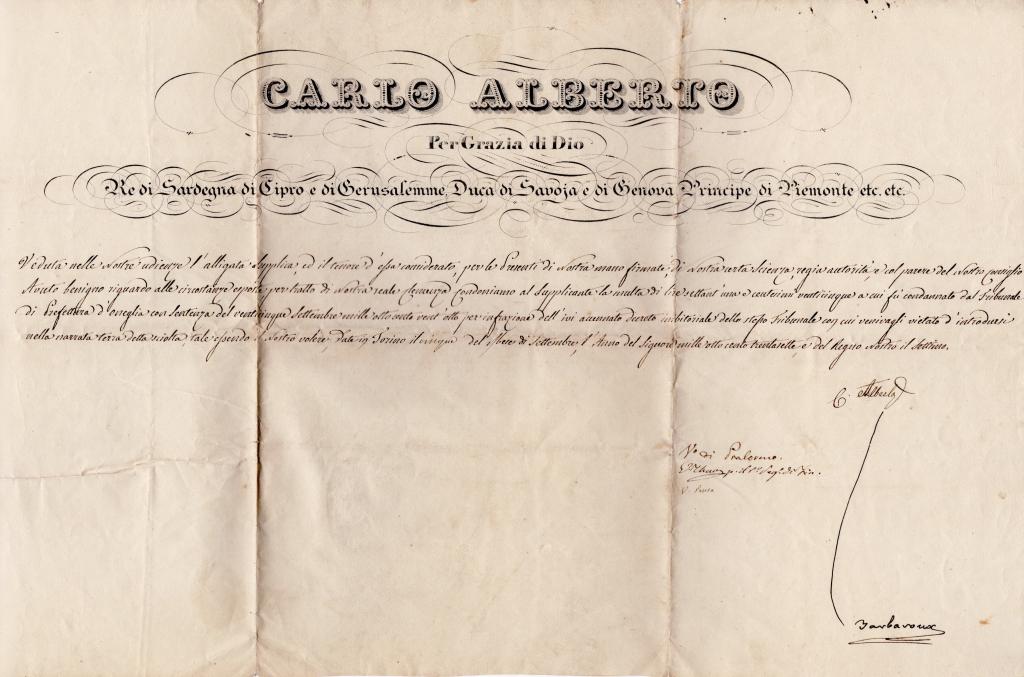 CARLO ALBERTO
Per Grazia di Dio
Re di Sardegna di Cipro e di Gerusalemme, Duca di Savoja e di Genova Principe di Piemonte etc. etc.
Veduta nelle Nostre udienze l'alligata Supplica, ed il tenore d'essa considerato, per le Presenti di Nostra mano firmate, di Nostra certa Scienza, regia autorità e col parere del Nostro Consiglio
Avuto benigno riguardo alle circostanze esposte, per tratto di Nostra reale Clemenza Condoniamo al Supplicante la multa di lire settant'una e centesimi venticinque a cui fù condannato dal Tribunale
di Prefettura d'Oneglia con Sentenza del venticinque Settembre mille otto cento vent'otto per infrazione dell'ivi accennato decreto inibitoriale dello stesso Tribunale con cui venivagli vietato d'introdursi
nella narrata terra detta tale essendo il Nostro volere; Dat. in Torino il cinque del Mese di Settembre, l'Anno del Signore mille otto cento trentasette, e del Regno Nostro il Settimo.
C. Alberto
Vo di Pralormo.
Barbaroux